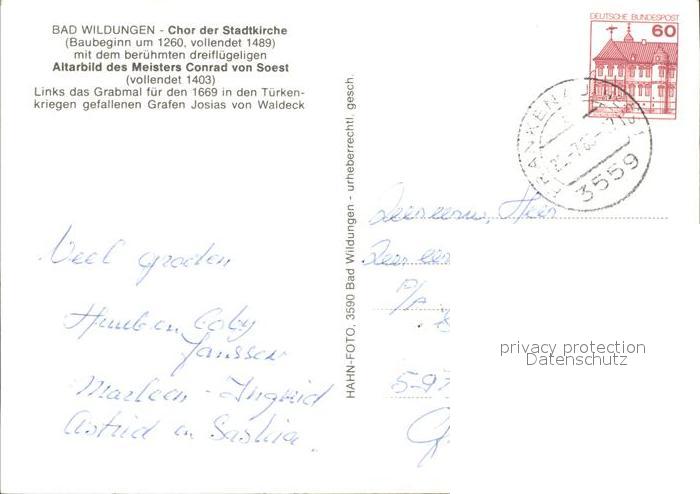 BAD WILDUNGEN - Chor der Stadtkirche
(Baubeginn um 1260, vollendet 1489)
mit dem berühmten dreiflügeligen
Altarbild des Meisters Conrad von Soest
(vollendet 1403)
Links das Grabmal für den 1669 in den Türken-
kriegen gefallenen Grafen Josias von Waldeck
HAHN-FOTO, 3590 Bad Wildungen - urheberrechtl. gesch.
DEUTSCHE BUNDESPOST
60
3559
Veel groeten
Huub en Coby
Janssen
Marleen - Ingrid
Astrid en Saskia.
P/A
privacy protection
Datenschutz